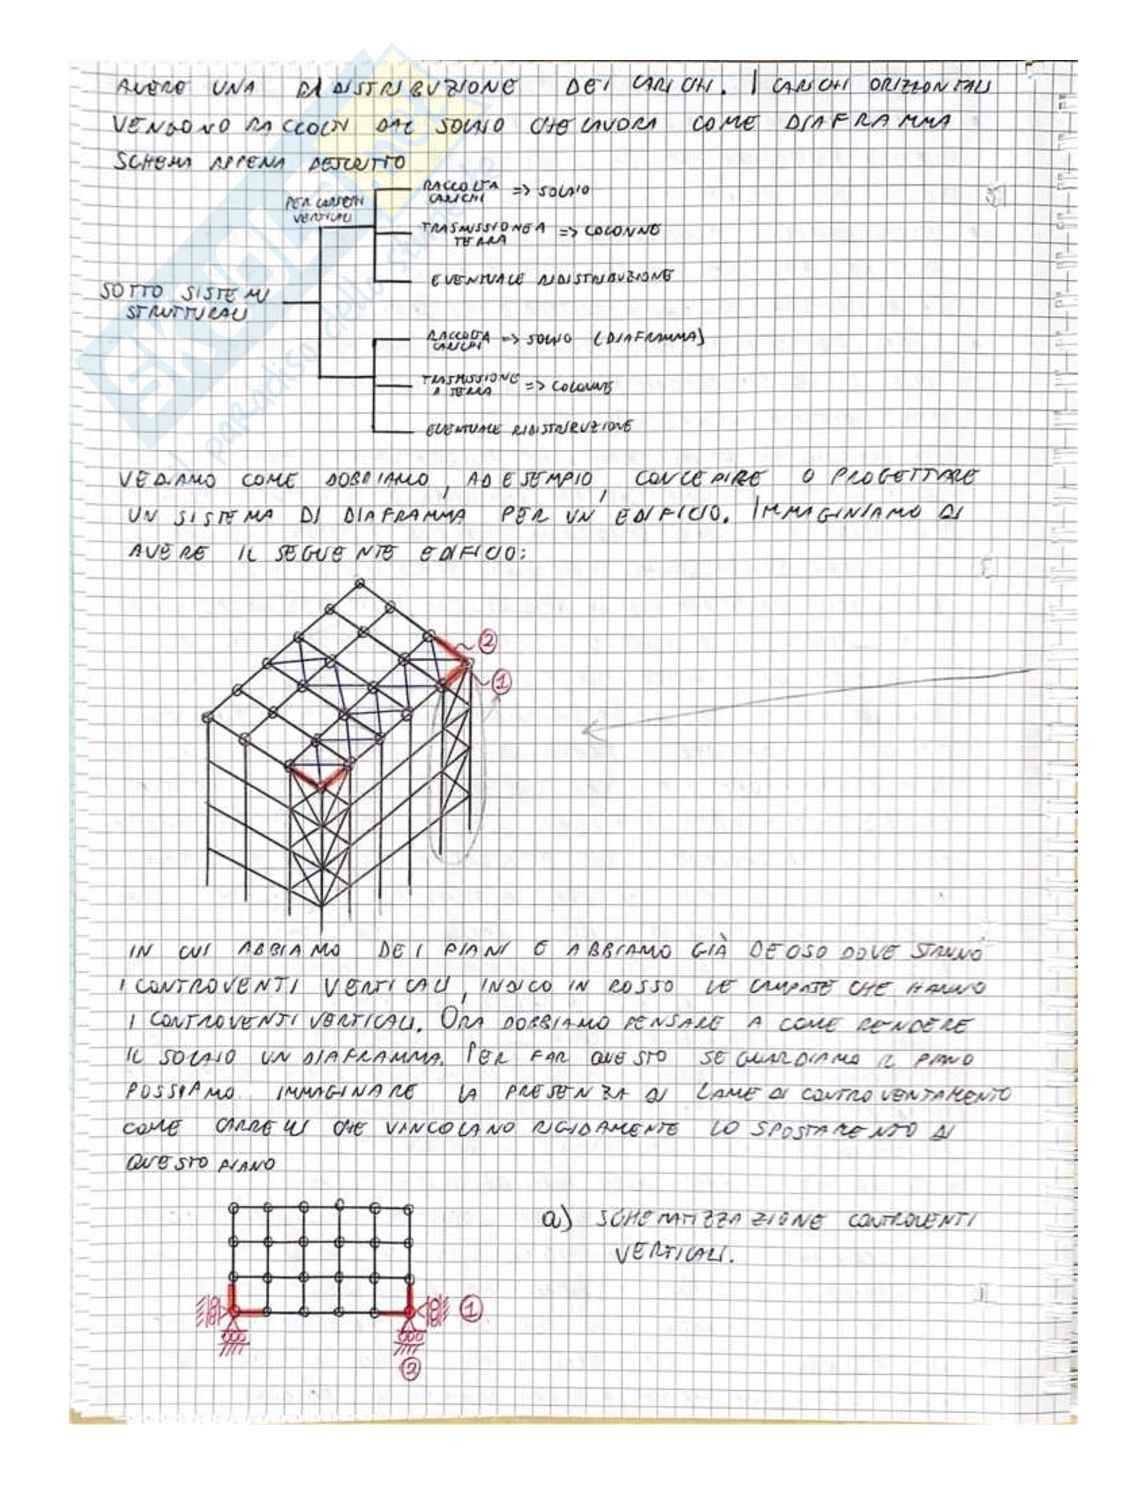 AVERE UNA RIDISTRIBUZIONE DEI CARICHI. I CARICHI ORIZZONTALI
VENGONO RACCOLTI DAL SOLAIO CHE LAVORA COME DIAFRAMMA
SCHEMA APPENA DESCRITTO
PER CARICHI
VERTICALI
RACCOLTA
CARICHI => SOLAIO
TRASMISSIONE A
TERRA => COLONNE
EVENTUALE RIDISTRIBUZIONE
SOTTO SISTEMI
STRUTTURALI
RACCOLTA
CARICHI => SOLAIO (DIAFRAMMA)
TRASMISSIONE
A TERRA => COLONNE
EVENTUALE RIDISTRIBUZIONE
VEDIAMO COME DOBBIAMO, AD ESEMPIO, CONCEPIRE O PROGETTARE
UN SISTEMA DI DIAFRAMMA PER UN EDIFICIO. IMMAGINIAMO DI
AVERE IL SEGUENTE EDIFICIO:
2
1
IN CUI ABBIAMO DEI PIANI E ABBIAMO GIÀ DECISO DOVE STANNO
I CONTROVENTI VERTICALI, INDICO IN ROSSO LE CAMPATE CHE HANNO
I CONTROVENTI VERTICALI. ORA DOBBIAMO PENSARE A COME RENDERE
IL SOLAIO UN DIAFRAMMA. PER FAR QUESTO SE GUARDIAMO IL PIANO
POSSIAMO IMMAGINARE LA PRESENZA DI LAME DI CONTROVENTAMENTO
COME CARRELLI CHE VINCOLANO RIGIDAMENTE LO SPOSTAMENTO DI
QUESTO PIANO
a) SCHEMATIZZAZIONE CONTROVENTI
VERTICALI.
1
2
SKUOLA.net
paradiso dello studente